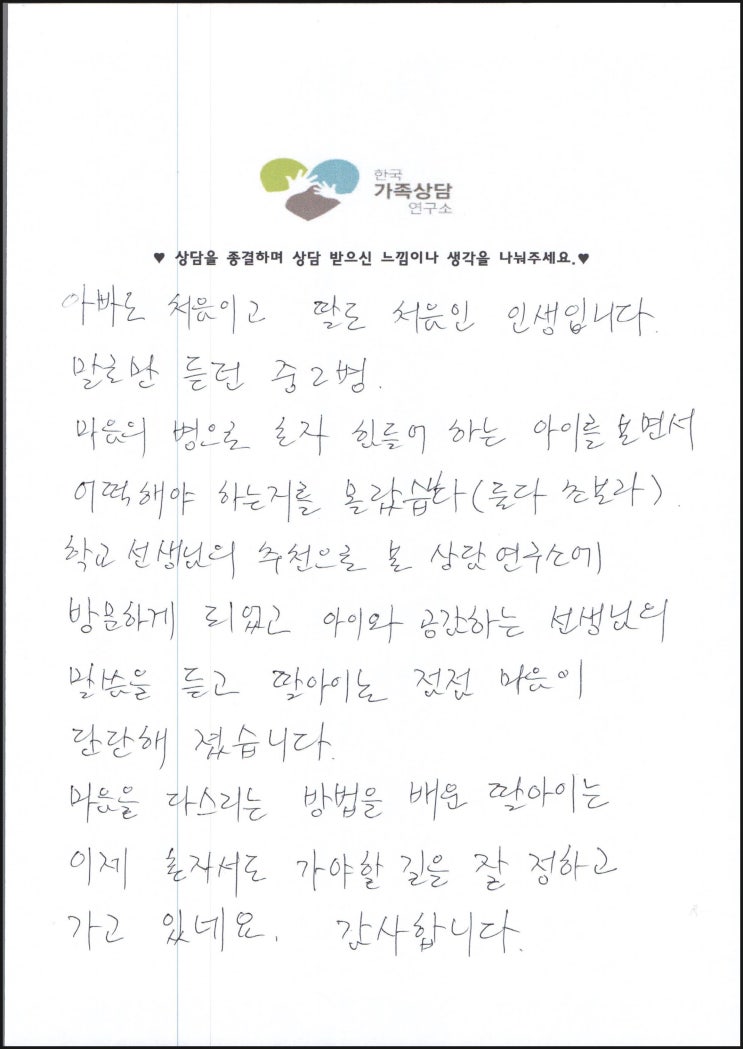 한국
가족상담
연구소
♥ 상담을 종결하며 상담 받으신 느낌이나 생각을 나눠주세요.♥
아빠도 처음이고 딸도 처음인 인생입니다.
말로만 듣던 중2병.
마음의 병으로 혼자 힘들어 하는 아이를 보면서
어떡해야 하는지를 몰랐습니다 (둘다 초보라)
학교 선생님의 추천으로 본 상담 연구소에
방문하게 되었고 아이와 공감하는 선생님의
말씀을 듣고 딸아이는 점점 마음이
단단해 졌습니다.
마음을 다스리는 방법을 배운 딸아이는
이제 혼자서도 가야할 길을 잘 정하고
가고 있네요. 감사합니다.